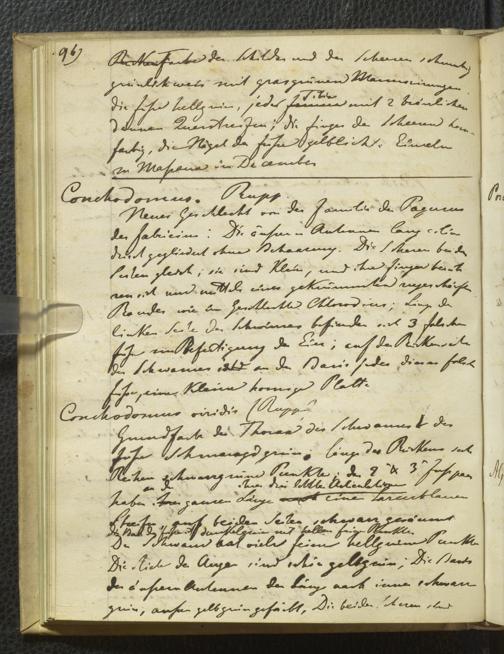 96)
Farbe des Schildes und der Scheeren schmutzig
grünlichweis mit grasgrünen Marmorirungen
die Füsse hellgrün, jedes Tibia mit 2 bräunlichen
dünnen Querstreifen; die Finger der Scheeren horn
farbig, die Nägel der Füsse gelblich. Einzeln
in Massaua im December
Conchodomus. Rupp.
Neues Geschlecht von der Familie der Pagurus
des Fabricius: Die äusseren Antennen lang,
gegliedert ohne Behaarung. Die Scheren beider
Seiten gleich; sie sind klein, und ihre Finger berüh
ren sich nur mittels eines gekrümmten
Randes wie im Geschlecht Chlorodius; längs der
linken Seite des Schwanzes befinden sich 3 falsche
Füsse zur Befestigung der Eier; auf der Rückenseite
des Schwanzes an der Basis jedes dieser falschen
Füsse, eine kleine hornige Platte
Conchodomus viridis (Rupp)
Grundfarbe des Thorax des Schwanzes & der
Füsse Schmaragdgrün, längs des Rückens sechs
Reihen schwarzgrüne Punkte; die 2 & 3 Fusspaar
haben an der ganzen Länge ihrer drei letzten Articulationen eine lasurblauen
Streifen auf beiden Seiten, schwarz gesäumt
die Basis der Füsse ist dunkelgrün mit hellen feinen Punkten
Der Schwanz hat viele feine hellgrüne Punkte
Die Stiele der Augen sind schön gelbgrün; Die Basis
der äussern Antennen der Länge nach innen schwarz
grün, aussen gelbgrün gefärbt, Die beiden Scheren sind